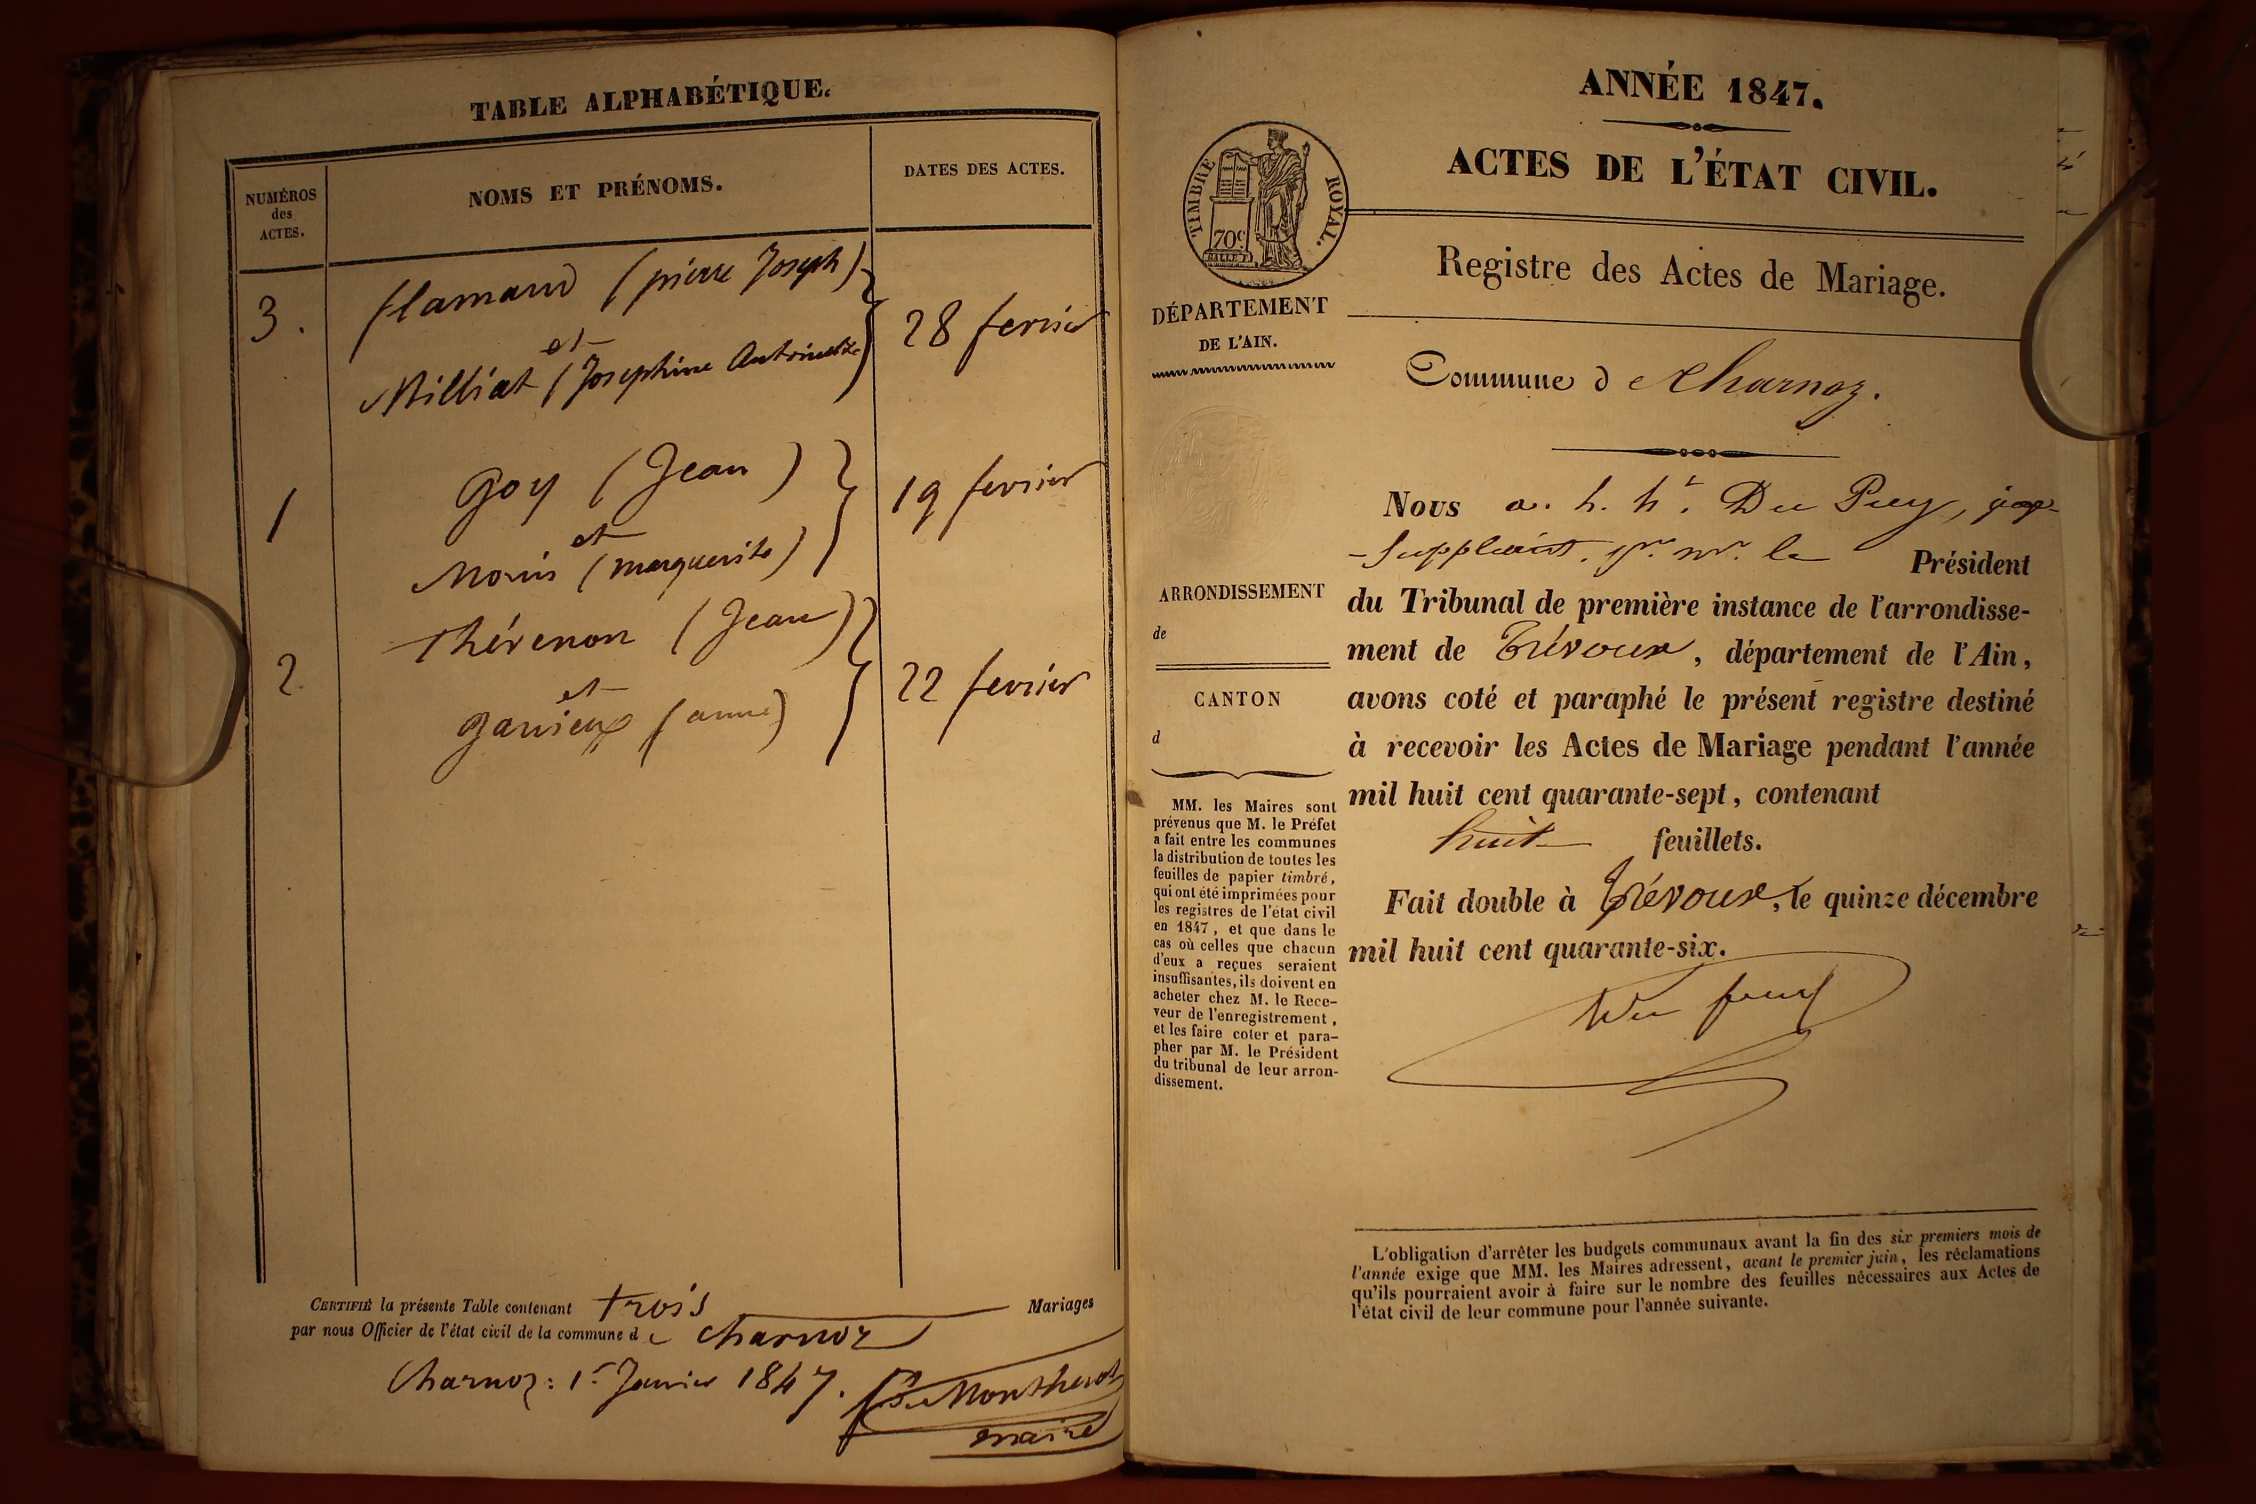 TABLE ALPHABÉTIQUE.
NUMÉROS
des
ACTES.
NOMS ET PRÉNOMS.
DATES DES ACTES.
3. flamand (pierre Joseph)
et
Milliat (Josephine Antoinette
28 fevrier
1 Goy (Jean)
et
Morin (marguerite)
19 fevrier
2. Thévenon (Jean)
et
Janieux (anne)
22 fevrier
CERTIFIÉ la présente Table contenant trois Mariages
par nous Officier de l'état civil de la commune de charnoz
Charnoz : 1r Janvier 1847. De Montherot
maire
ANNÉE 1847.
ACTES DE L'ÉTAT CIVIL.
TIMBRE ROYAL.
70c
Registre des Actes de Mariage.
DÉPARTEMENT
DE L'AIN.
Commune d e Charnoz.
Nous a. h. ht. Du Puy, juge
-Suppléant, pr. mr. le Président
du Tribunal de première instance de l'arrondisse-
ment de Trévoux, département de l'Ain,
avons coté et paraphé le présent registre destiné
à recevoir les Actes de Mariage pendant l'année
mil huit cent quarante-sept, contenant
huit feuillets.
Fait double à Trévoux, le quinze décembre
mil huit cent quarante-six.
Du puy
ARRONDISSEMENT
de
CANTON
d
MM. les Maires sont
prévenus que M. le Préfet
a fait entre les communes
la distribution de toutes les
feuilles de papier timbré,
qui ont été imprimées pour
les registres de l'état civil
en 1847, et que dans le
cas où celles que chacun
d'eux a reçues seraient
insuffisantes, ils doivent en
acheter chez M. le Rece-
veur de l'enregistrement,
et les faire coter et para-
pher par M. le Président
du tribunal de leur arron-
dissement.
L'obligation d'arrêter les budgets communaux avant la fin des six premiers mois de
l'année exige que MM. les Maires adressent, avant le premier juin, les réclamations
qu'ils pourraient avoir à faire sur le nombre des feuilles nécessaires aux Actes de
l'état civil de leur commune pour l'année suivante.